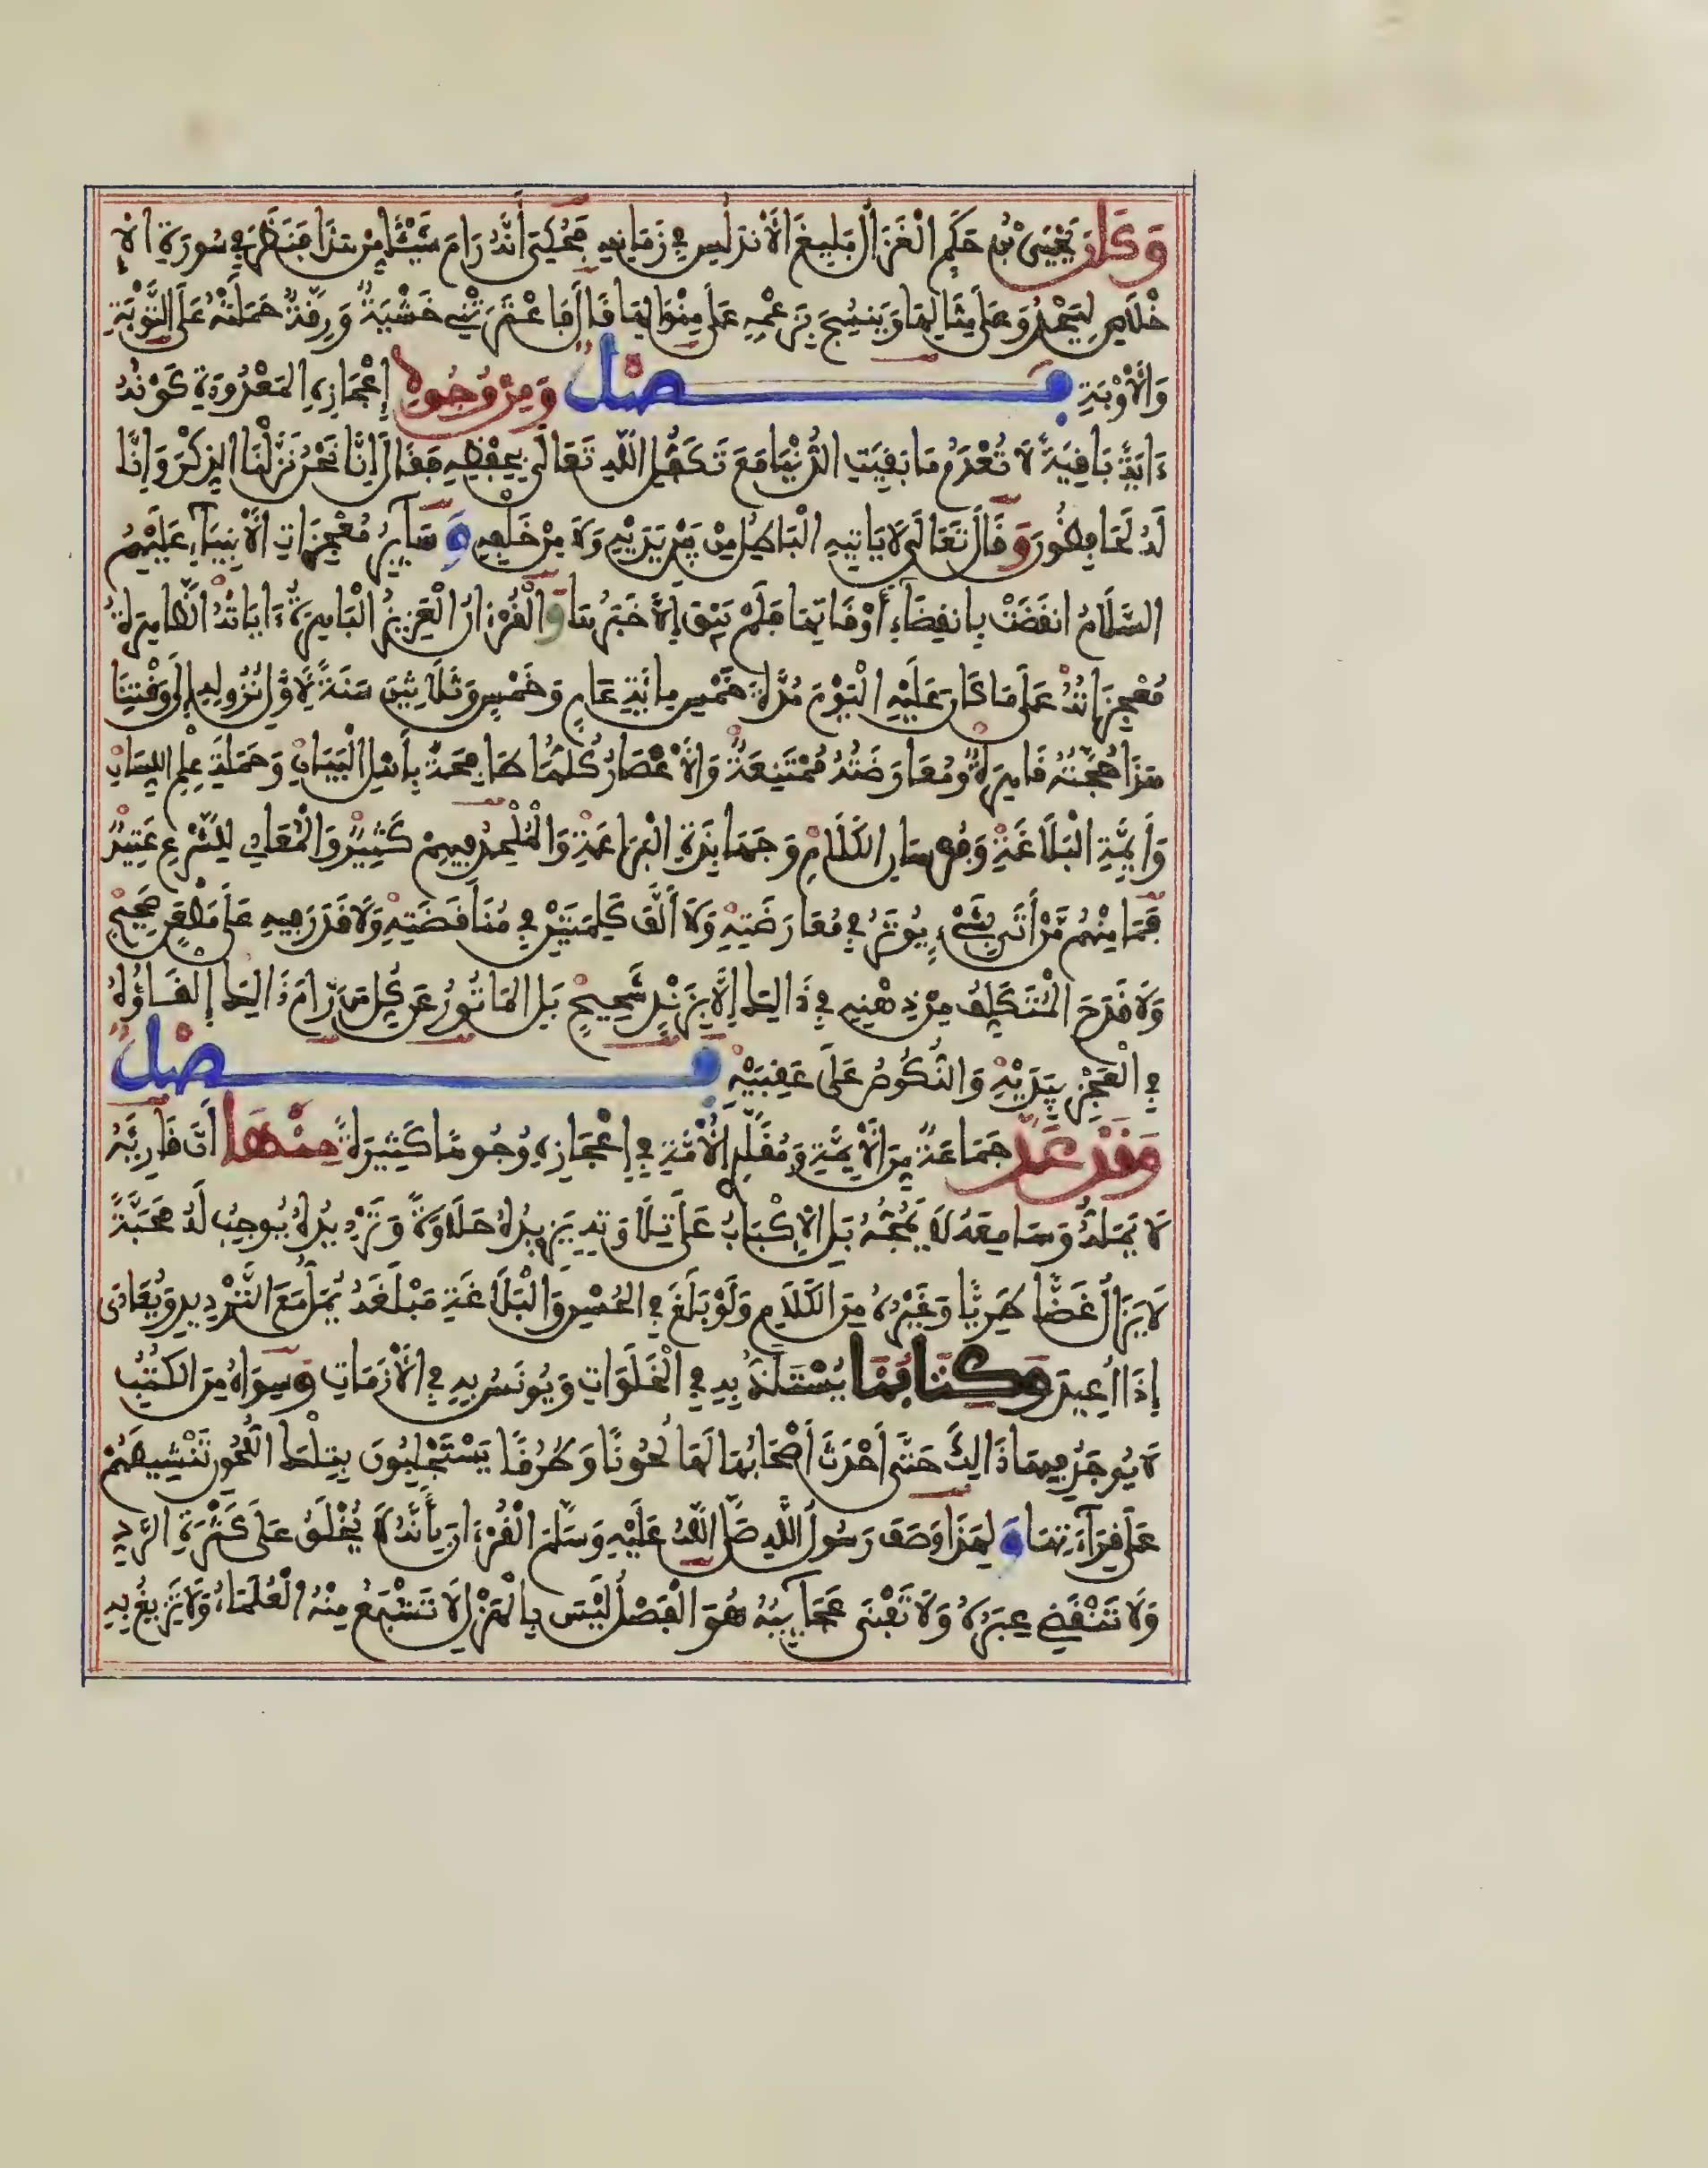 وَكَانَ يَحْيَى بْنُ حَكَمٍ الْغَزَالُ بَلِيغَ الْأَنْدَلُسِ فِي زَمَانِهِ فَحُكِيَ أَنَّهُ رَامَ شَيْئًا مِنْ هَذَا فَنَظَرَ فِي سُورَةِ الْإِ
خْلَاصِ لِيَحْذُوَ عَلَى مِثَالِهَا وَيَنْسِجَ بِزَعْمِهِ عَلَى مِنْوَالِهَا قَالَ فَاعْتَرَتْنِي خَشْيَةٌ وَرِقَّةٌ حَمَلَتْهُ عَلَى التَّوْبَةِ
وَالْأَوْبَةِ فَصْلٌ وَمِنْ وُجُوهِ إِعْجَازِهِ الْمَعْدُودَةِ كَوْنُهُ
ءَايَةً بَاقِيَةً لَا تُعْدَمُ مَا بَقِيَتِ الدُّنْيَا مَعَ تَكَفُّلِ اللَّهِ تَعَالَى بِحِفْظِهِ فَقَالَ إِنَّا نَحْنُ نَزَّلْنَا الذِّكْرَ وَإِنَّا
لَهُ لَحَافِظُونَ وَقَالَ تَعَالَى لَا يَاتِيهِ الْبَاطِلُ مِنْ بَيْنِ يَدَيْهِ وَلَا مِنْ خَلْفِهِ وَسَآئِرُ مُعْجِزَاتِ الْأَنْبِيَآءِ عَلَيْهِمُ
السَّلَامُ انْقَضَتْ بِانْقِضَاءِ أَوْقَاتِهَا فَلَمْ يَبْقَ إِلَّا خَبَرُهَا وَالْقُرْءَانُ الْعَزِيزُ الْبَاهِرَةُ ءَايَاتُهُ الظَّاهِرَةُ
مُعْجِزَاتُهُ عَلَى مَا كَانَ عَلَيْهِ الْيَوْمَ مُدَّةَ خَمْسِ مِائَةِ عَامٍ وَخَمْسٍ وَثَلَاثِينَ سَنَةً لِأَوَّلِ نُزُولِهِ إِلَى وَقْتِنَا
هَذَا حُجَّتُهُ قَاهِرَةٌ وَمُعَارَضَتُهُ مُمْتَنِعَةٌ وَالْأَعْصَارُ كُلُّهَا طَافِحَةٌ بِأَهْلِ الْبَيَانِ وَحَمَلَةِ عِلْمِ اللِّسَانِ
وَأَئِمَّةِ الْبَلَاغَةِ وَفُرْسَانِ الْكَلَامِ وَجَهَابِذَةِ الْبَرَاعَةِ وَالْمُلْحِدُ فِيهِمْ كَثِيرٌ وَالْمُعَادِي لِلشَّرْعِ عَتِيدٌ
فَمَا مِنْهُمْ مَنْ أَتَى بِشَيْءٍ يُوثَرُ فِي مُعَارَضَتِهِ وَلَا أَلَّفَ كَلِمَتَيْنِ فِي مُنَاقَضَتِهِ وَلَا قَدَرَ فِيهِ عَلَى مَطْعَنٍ صَحِيحٍ
وَلَا قَدَحَ الْمُتَكَلِّفُ مِنْ ذِهْنِهِ فِي ذَالِكَ إِلَّا بِزَنْدٍ شَحِيحٍ بَلِ الْمَاثُورُ عَنْ كُلِّ مَنْ رَامَ ذَالِكَ إِلْقَاؤُهُ
فِي الْعَجْزِ بِيَدَيْهِ وَالنُّكُوصُ عَلَى عَقِبَيْهِ فَصْلٌ
وَقَدْ عَدَّ جَمَاعَةٌ مِنَ الْأَئِمَّةِ وَمُقَلِّدِي الْأُمَّةِ فِي إِعْجَازِهِ وُجُوهًا كَثِيرَةً مِنْهَا أَنَّ قَارِئَهُ
لَا يَمَلُّهُ وَسَامِعَهُ لَا يَمُجُّهُ بَلِ الْإِكْبَابُ عَلَى تِلَاوَتِهِ يَزِيدُهُ حَلَاوَةً وَتَرْدِيدُهُ يُوجِبُ لَهُ مَحَبَّةً
لَا يَزَالُ غَضًّا طَرِيًّا وَغَيْرُهُ مِنَ الْكَلَامِ وَلَوْ بَلَغَ فِي الْحُسْنِ وَالْبَلَاغَةِ مَبْلَغَهُ يُمَلُّ مَعَ التَّرْدِيدِ وَيُعَادَى
إِذَا أُعِيدَ وَكِتَابُنَا يُسْتَلَذُّ بِهِ فِي الْخَلَوَاتِ وَيُونَسُ بِهِ فِي الْأَزَمَاتِ وَسِوَاهُ مِنَ الْكُتُبِ
لَا يُوجَدُ فِيهَا ذَالِكَ حَتَّى أَحْدَثَ أَصْحَابُهَا لَهَا لُحُونًا وَطُرُقًا يَسْتَجْلِبُونَ بِتِلْكَ اللُّحُونِ تَنْشِيطَهُمْ
عَلَى قِرَآءَتِهَا وَلِهَذَا وَصَفَ رَسُولُ اللَّهِ صَلَّى اللَّهُ عَلَيْهِ وَسَلَّمَ الْقُرْءَانَ بِأَنَّهُ لَا يَخْلَقُ عَلَى كَثْرَةِ الرَّدِّ
وَلَا تَنْقَضِي عِبَرُهُ وَلَا تَفْنَى عَجَآئِبُهُ هُوَ الْفَصْلُ لَيْسَ بِالْهَزْلِ لَا تَشْبَعُ مِنْهُ الْعُلَمَاءُ وَلَا تَزِيغُ بِهِ